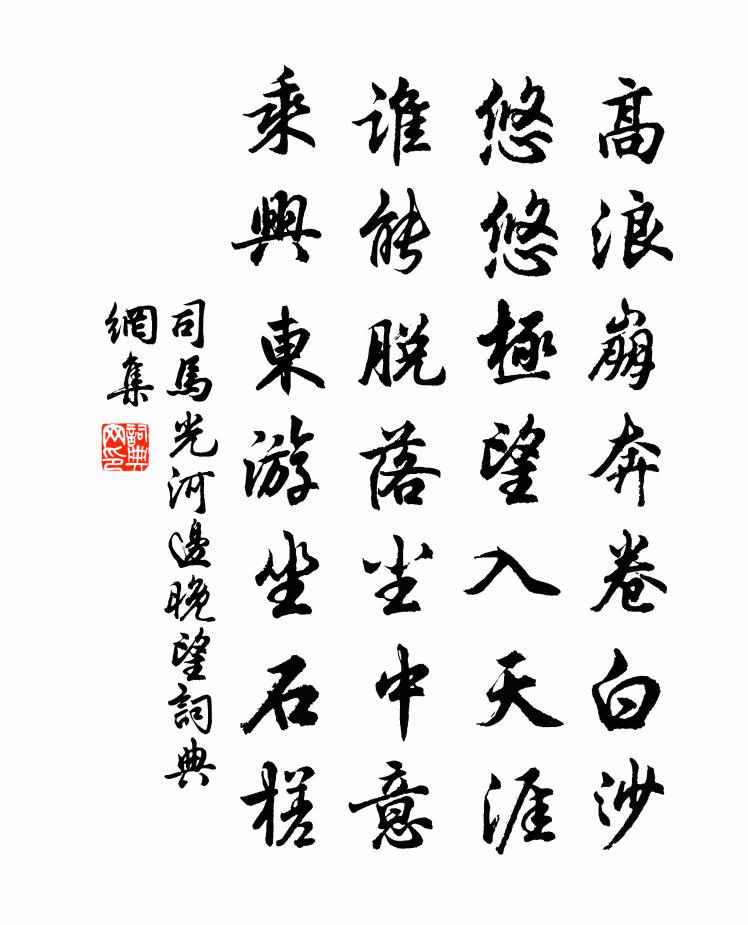 高浪崩奔卷白沙
悠悠極望入天涯
誰能脫落塵中意
乘興東游坐石槎
司馬光河邊晚望詞典
網集
詞典
网印